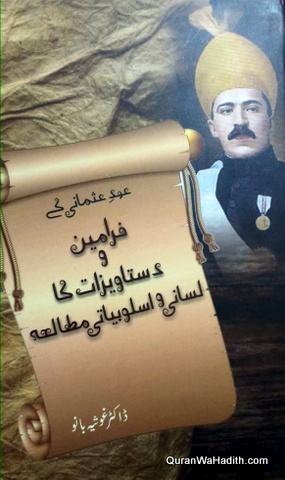 عہدِ عثمانی کے
فرامین
و
دستاویزات کا
لسانی و اسلوبیاتی مطالعہ
ڈاکٹر غوثیہ بانو
QuranWaHadith.com